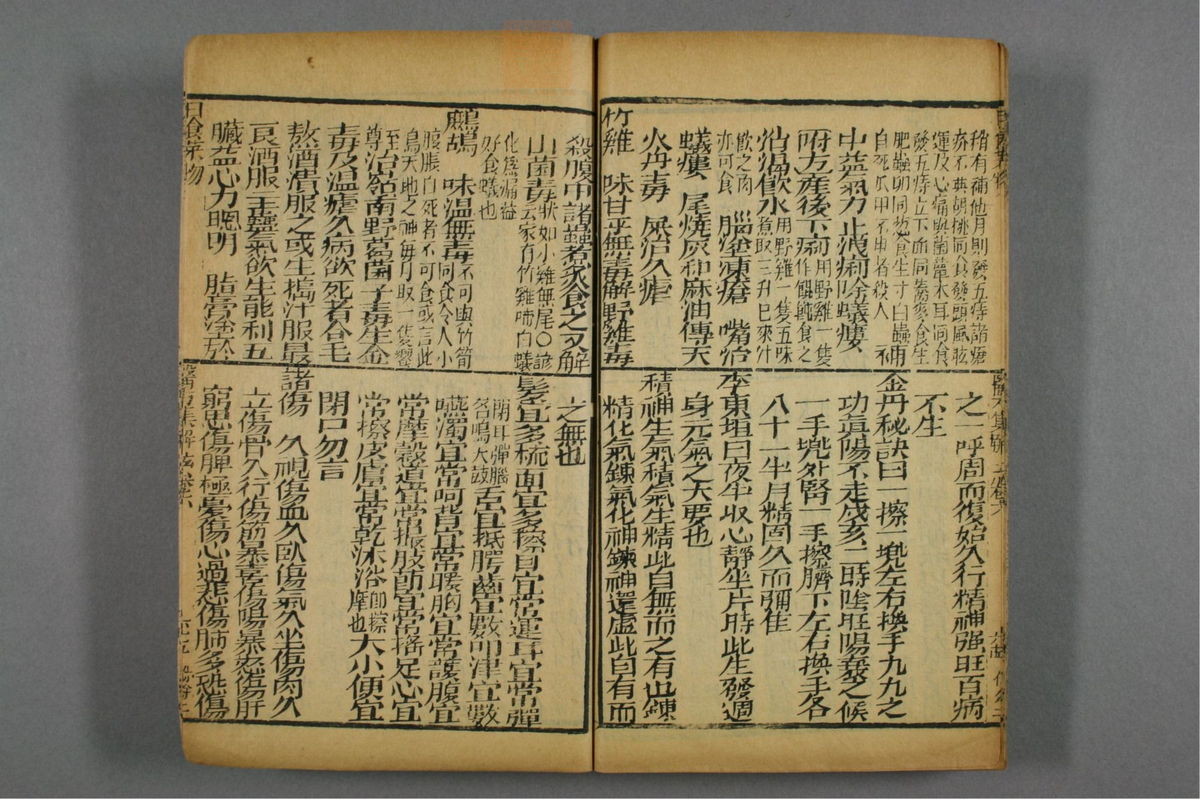 稍有補他月則發五痔諸瘡
疥不與胡桃同食發頭風眩
運及心痛與菌蕈木耳同食
發五痔立下血同蕎麥食生
肥蟲卵同葱食生寸白蟲
自死爪甲不申者殺人 補
中益氣力止洩痢除蟻瘻、
兩方產後下痢用野雞一隻作餛飩食之
治渴飲水用野雞一隻五味煮取三升已來汁
飲之肉亦可食 腦塗凍瘡 嘴治
蟻瘻、尾燒灰和麻油傅天
火丹毒 屎治久瘧
竹雞 味甘平無毒解野雞毒
之一呼周而復始久行精神強旺百病
不生
金丹秘訣曰一擦一兜左右換手九九之
功真陽不走戌亥二時陰旺陽衰之候
一手兜外腎一手擦臍下左右換手各
八十一半月精固久而彌佳
李東垣曰夜半收心靜坐片時此生發週
身元氣之大要也
積神生氣積氣生精此自無而之有也鍊
精化氣鍊氣化神鍊神還虛此自有而
殺腹中諸蟲煑炙食之又解
山菌毒狀如小雞無尾○諺云家有竹雞啼白蟻
化為好食蟻也
鷓鴣 味溫無毒不可與竹筍同食令人小
腹脹自死者不可食或言此
鳥天地之神每月取一隻饗
至尊治嶺南野葛菌子毒生金
毒及溫瘧久病欲死者合毛
熬酒漬服之或生搗汁服最
良酒服主蠱氣欲生能利五
臟益心力聰明 脂膏塗於
之無也
髮宜多梳面宜多擦目宜常運耳宜常彈
閉耳彈腦名鳴天鼓舌宜抵腭齒宜數叩津宜數
嚥濁宜常呵背宜常暖胸宜常護腹宜
常摩穀道宜常撮肢節宜常搖足心宜
常擦皮膚宜常乾沐浴即擦摩也大小便宜
閉口勿言
諸傷 久視傷血久臥傷氣久坐傷肉久
立傷骨久行傷筋暴喜傷陽暴怒傷肝
窮思傷脾極憂傷心過悲傷肺多恐傷
日食菜物